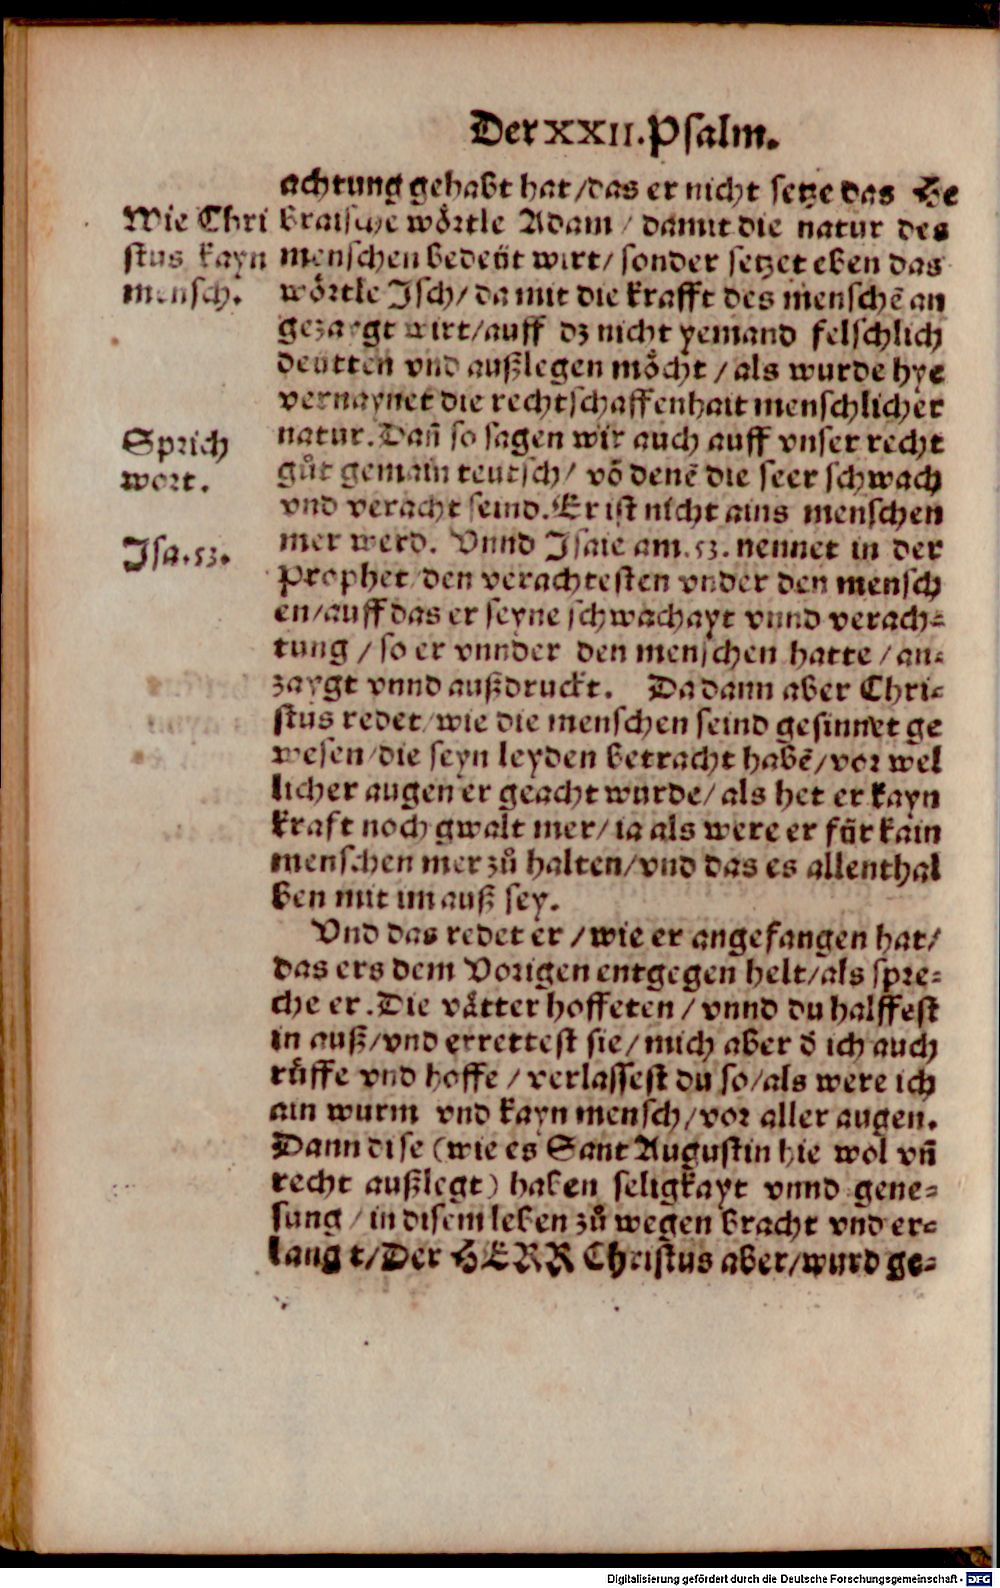 Der XXII. Psalm.
achtung gehabt hat/das er nicht setze das He
Wie Chri
stus kayn
mensch.
braische wörtle Adam / damit die natur des
menschen bedeüt wirt/ sonder setzet eben das
wörtle Jsch/ damit die krafft des menschē an
gezaygt wirt/auff dz nicht yemand felschlich
deütten vnd außlegen möcht / als wurde hye
vernaynet die rechtschaffenhait menschlicher
Sprich
wort.
natur. Dañ so sagen wir auch auff vnser recht
gůt gemain teutsch/ võ denē die seer schwach
vnd veracht seind. Er ist nicht ains menschen
Jsa.53.
mer werd. Vnnd Jsaie am .53. nennet in der
Prophet/den verachtesten vnder den mensch
en/auff das er seyne schwachayt vnnd verach-
tung / so er vnnder den menschen hatte / an-
zaygt vnnd außdruckt. Da dann aber Chri-
stus redet/wie die menschen seind gesinnet ge
wesen/die seyn leyden betracht habē/vor wel
licher augen er geacht wurde/ als het er kayn
kraft noch gwalt mer/ ia als were er für kain
menschen mer zů halten/vnd das es allenthal
ben mit im auß sey.
Vnd das redet er / wie er angefangen hat/
das ers dem Vorigen entgegen helt/als spre-
che er. Die våtter hoffeten / vnnd du halffest
in auß/vnd errettest sie/ mich aber d̄ ich auch
růffe vnd hoffe / verlassest du so/als were ich
ain wurm vnd kayn mensch/vor aller augen.
Dann dise (wie es Sant Augustin hie wol vñ
recht außlegt) haben seligkayt vnnd gene-
sung / in disem leben zů wegen bracht vnd er-
langt/Der HERR Christus aber/wurd ge-
Digitalisierung gefördert durch die Deutsche Forschungsgemeinschaft - DFG